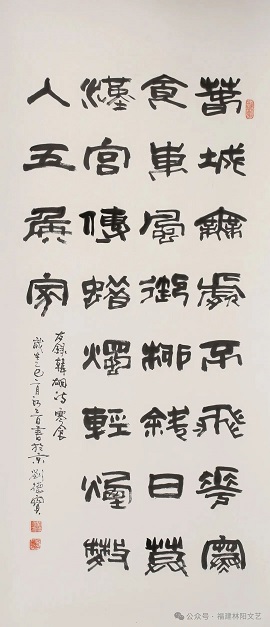 春城無處不飛花寒
食東風御柳斜日暮
漢宮傳蠟燭輕煙散
入五侯家
右錄韓翃詩寒食
歲在乙巳二月書於京劉
公众号·福建林阳文艺